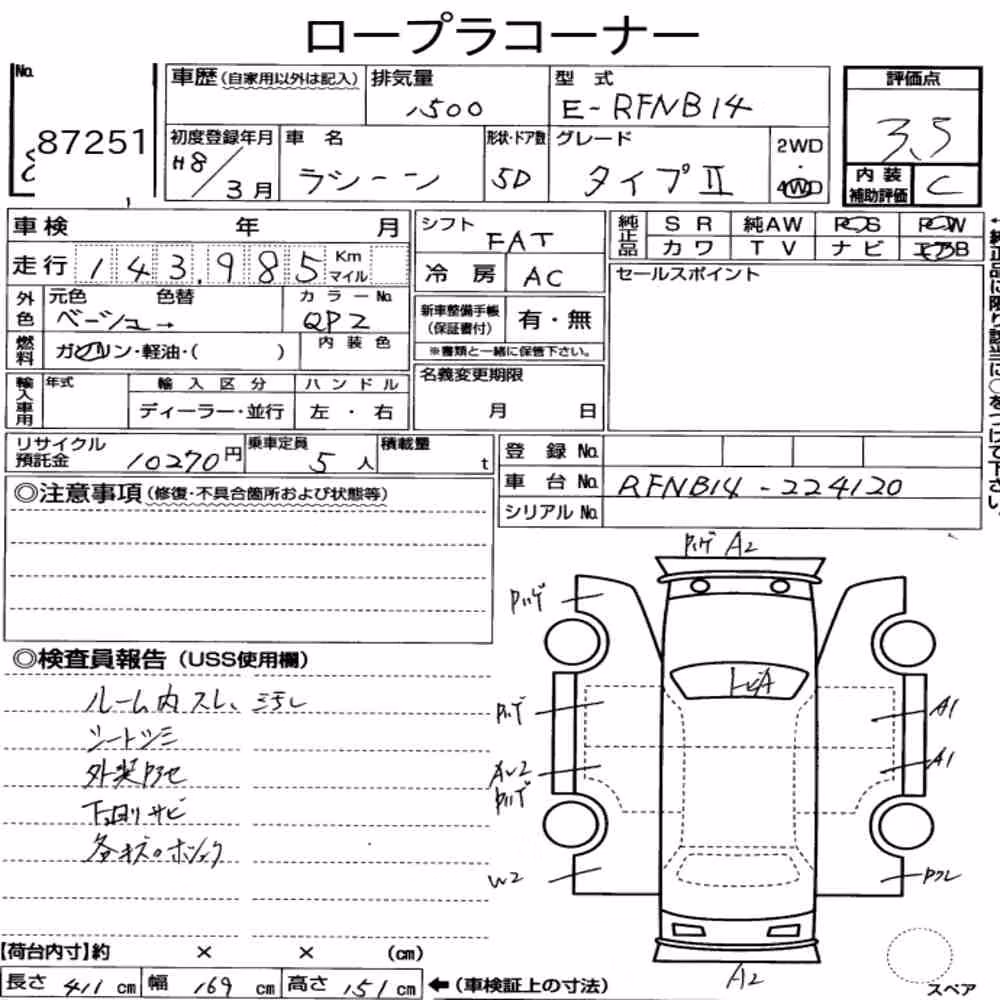 ロープラコーナー
No.
87251
車歴(自家用以外は記入)
排気量
1500
型 式
E-RFNB14
評価点
3.5
初度登録年月
H8/3月
車 名
ラシーン
形状・ドア数
5D
グレード
タイプⅡ
2WD
・
4WD
内装
補助評価
C
車検 年 月
走行 143,985 Km
マイル
シフト
FAT
冷 房
AC
純正品
SR 純AW PS PW
カワ TV ナビ エアB
セールスポイント
外色
元色 色替
ベージュ→
カラーNo.
QP2
新車整備手帳
(保証書付)
有・無
※書類と一緒に保管下さい。
燃料
ガソリン・軽油・( )
内装色
輸入車用
年式
輸入区分
ディーラー・並行
ハンドル
左・右
名義変更期限
月 日
←純正品に限り該当に○をつけて下さい。
リサイクル
預託金
10270円
乗車定員
5人
積載量
t
登 録 No.
車 台 No.
RFNB14-224120
シリアルNo.
◎注意事項(修復・不具合箇所および状態等)
◎検査員報告(USS使用欄)
ルーム内スレ、汚レ
シートシミ
外装アセ
下回リサビ
A2
トビA
A1
A1
W2
A2
【荷台内寸】約 × × (cm)
長さ 411 cm 幅 169 cm 高さ 151 cm ←(車検証上の寸法)
スペア